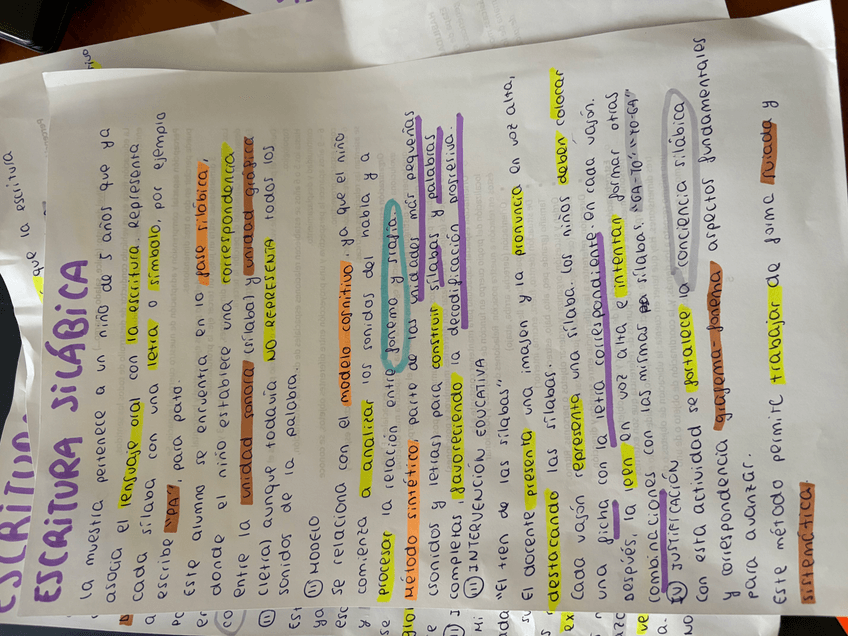 ESCRITURA SILÁBICA
la muestra pertenece a un niño de 5 años que ya
asocia el lenguaje oral con la escritura. Representa
cada sílaba con una letra o símbolo, por ejemplo
escribe "PA", para pato.
Este alumno se encuentra en la fase silábica,
donde el niño establece una correspondencia
entre la unidad sonora (sílaba) y unidad gráfica
(letra) aunque todavía NO REPRESENTA todos los
sonidos de la palabra.
II MODELO
se relaciona con el modelo cognitivo. ya que el niño
comienza a analizar los sonidos del habla y a
procesar la relación entre fonema y grafía.
Método sintético, parte de las unidades más pequeñas
(sonidos y letras) para construir sílabas y palabras
completas, favoreciendo la decodificación progresiva.
III INTERVENCIÓN EDUCATIVA
"El tren de las sílabas"
El docente presenta una imagen y la pronuncia en voz alta,
destacando las sílabas.
Cada vajón representa una sílaba. los niños deben colocar
una ficha con la letra correspondiente. en cada vajón.
Después, la leen en voz alta e intentan formar otras
combinaciones con las mismas sílabas. "GA-TO" "TO-GA"
IV JUSTIFICACIÓN
Con esta actividad se fortalece la conciencia silábica
y correspondencia grafema-fonema aspectos fundamentales
para avanzar.
Este método permite trabajar de forma guiada y
sistemática.
que la escritura